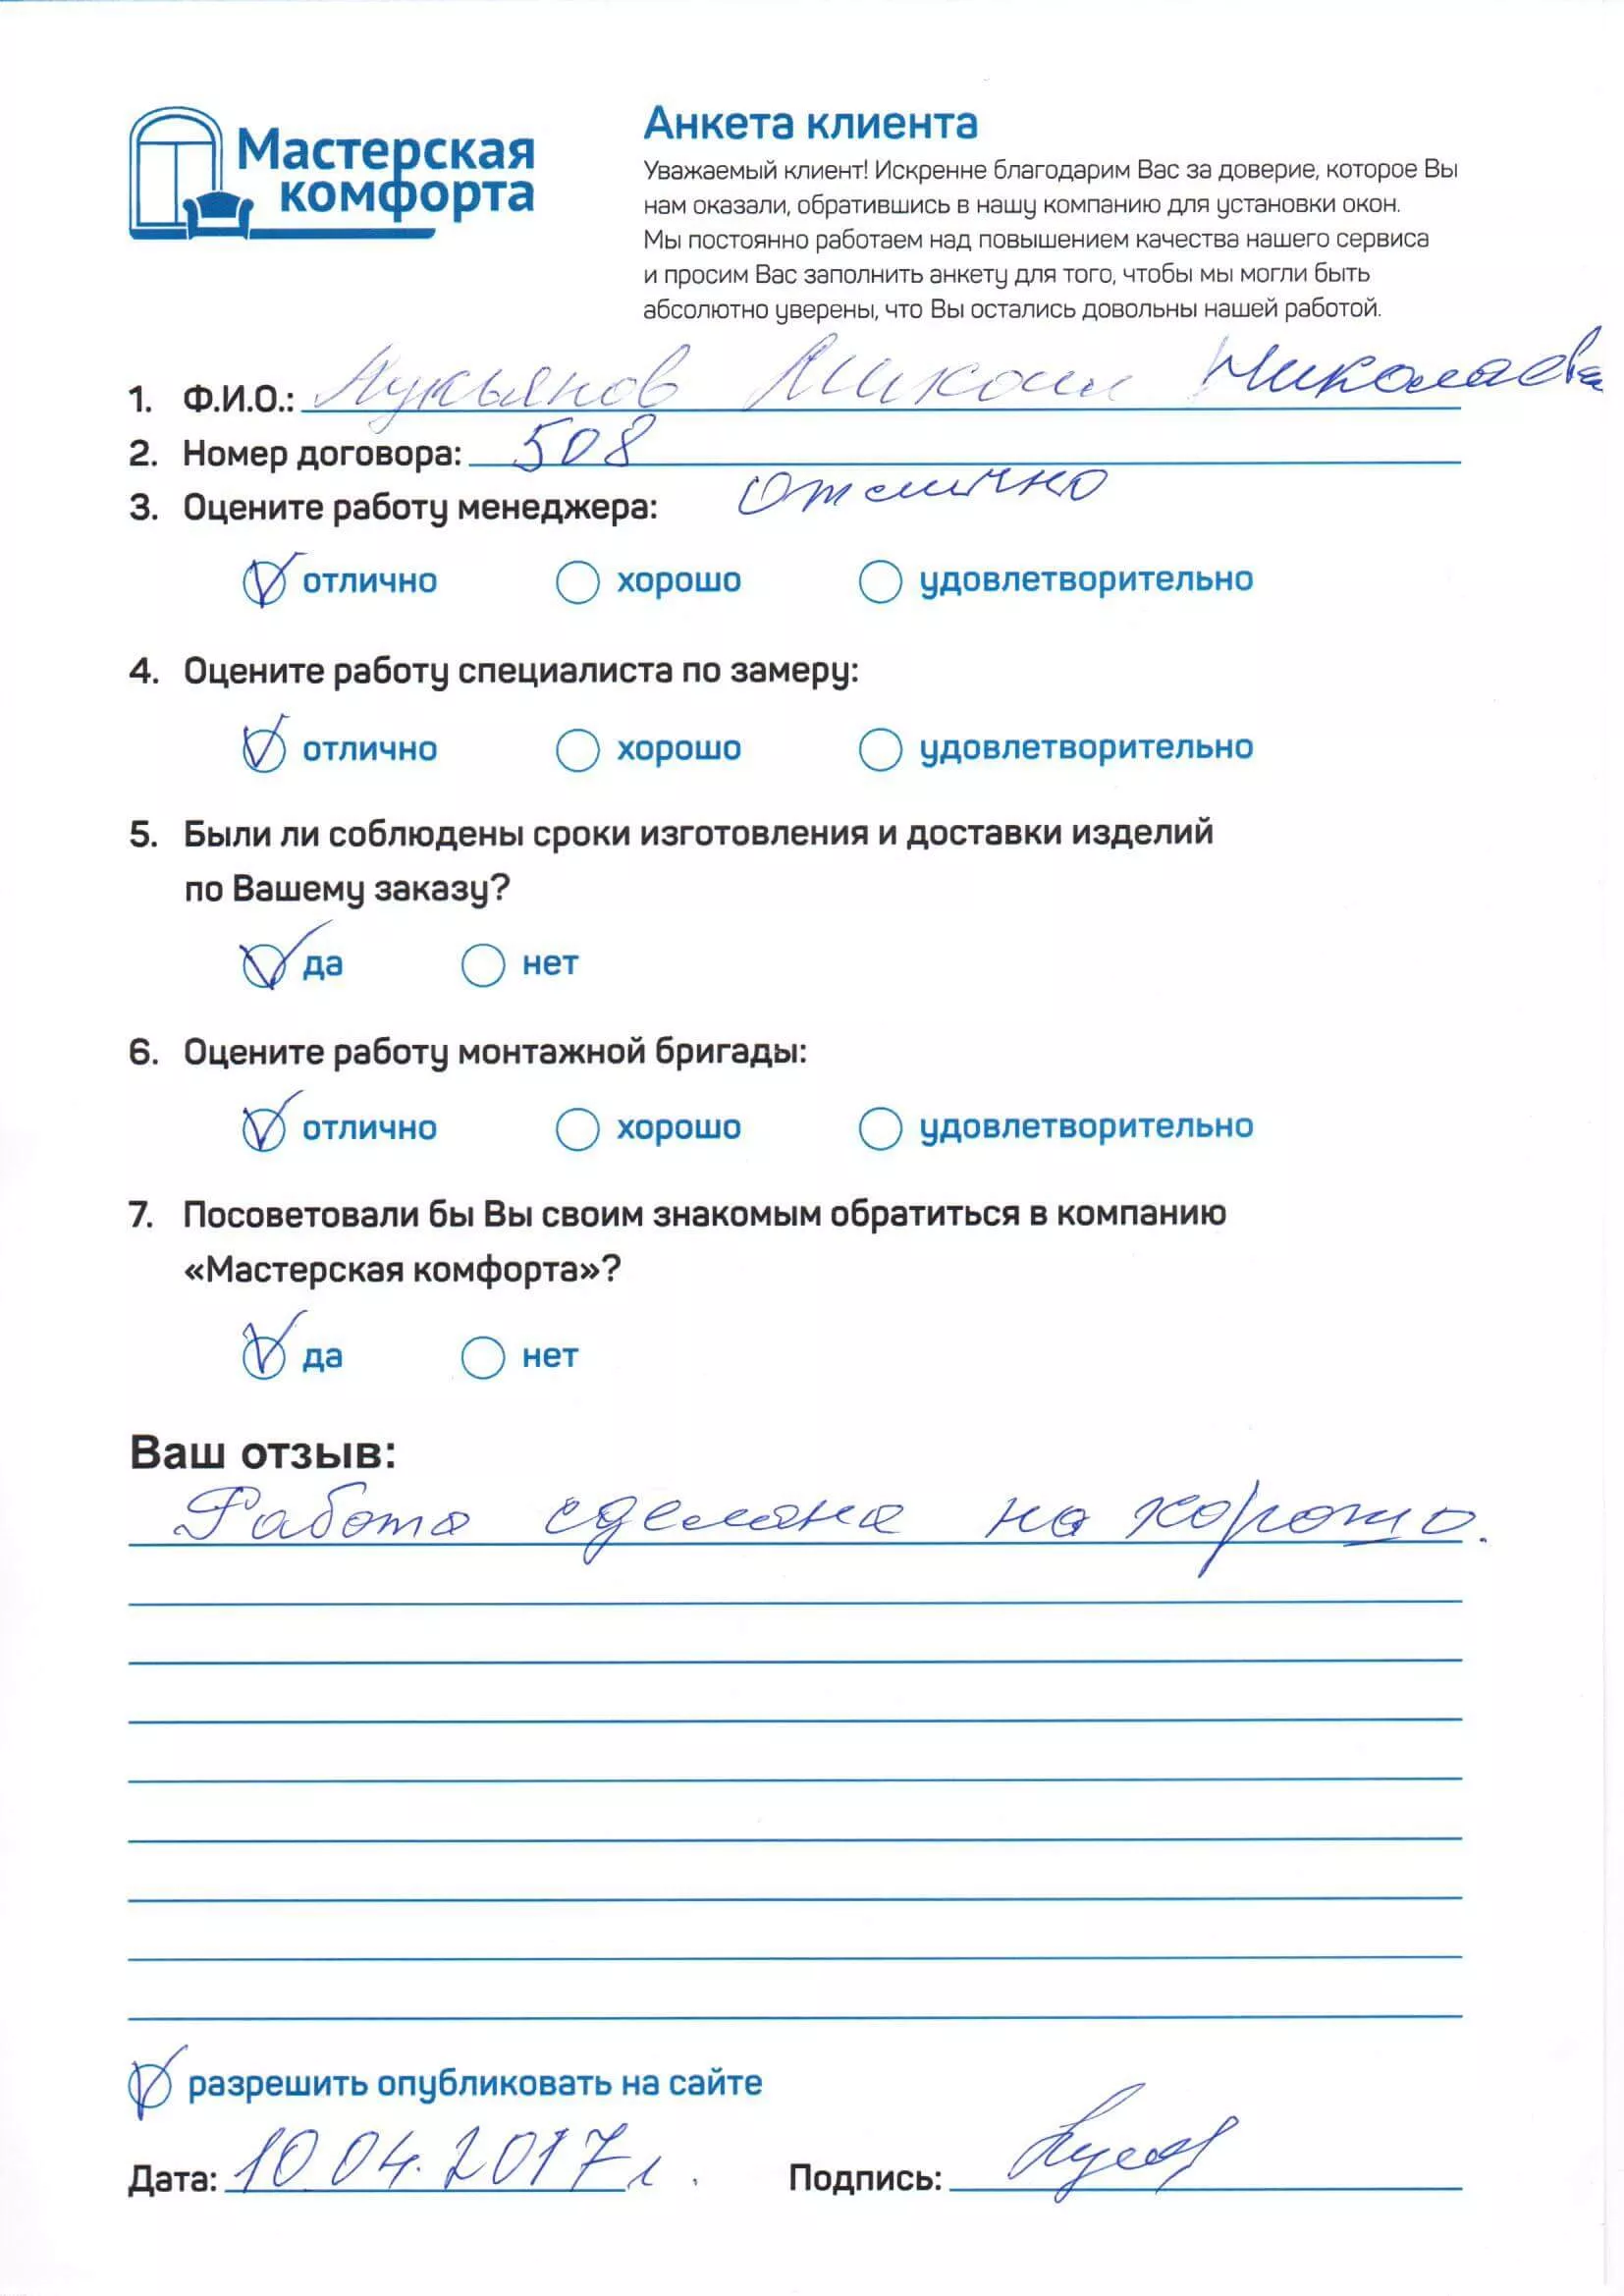 Мастерская
комфорта
Анкета клиента
Уважаемый клиент! Искренне благодарим Вас за доверие, которое Вы
нам оказали, обратившись в нашу компанию для установки окон.
Мы постоянно работаем над повышением качества нашего сервиса
и просим Вас заполнить анкету для того, чтобы мы могли быть
абсолютно уверены, что Вы остались довольны нашей работой.
1. Ф.И.О.: Лукьянов Николаев
2. Номер договора: 508
3. Оцените работу менеджера: Отлично
отлично хорошо удовлетворительно
4. Оцените работу специалиста по замеру:
отлично хорошо удовлетворительно
5. Были ли соблюдены сроки изготовления и доставки изделий
по Вашему заказу?
да нет
6. Оцените работу монтажной бригады:
отлично хорошо удовлетворительно
7. Посоветовали бы Вы своим знакомым обратиться в компанию
«Мастерская комфорта»?
да нет
Ваш отзыв:
Работа сделана на хорошо.
разрешить опубликовать на сайте
Дата: 10.04.2017г. Подпись: